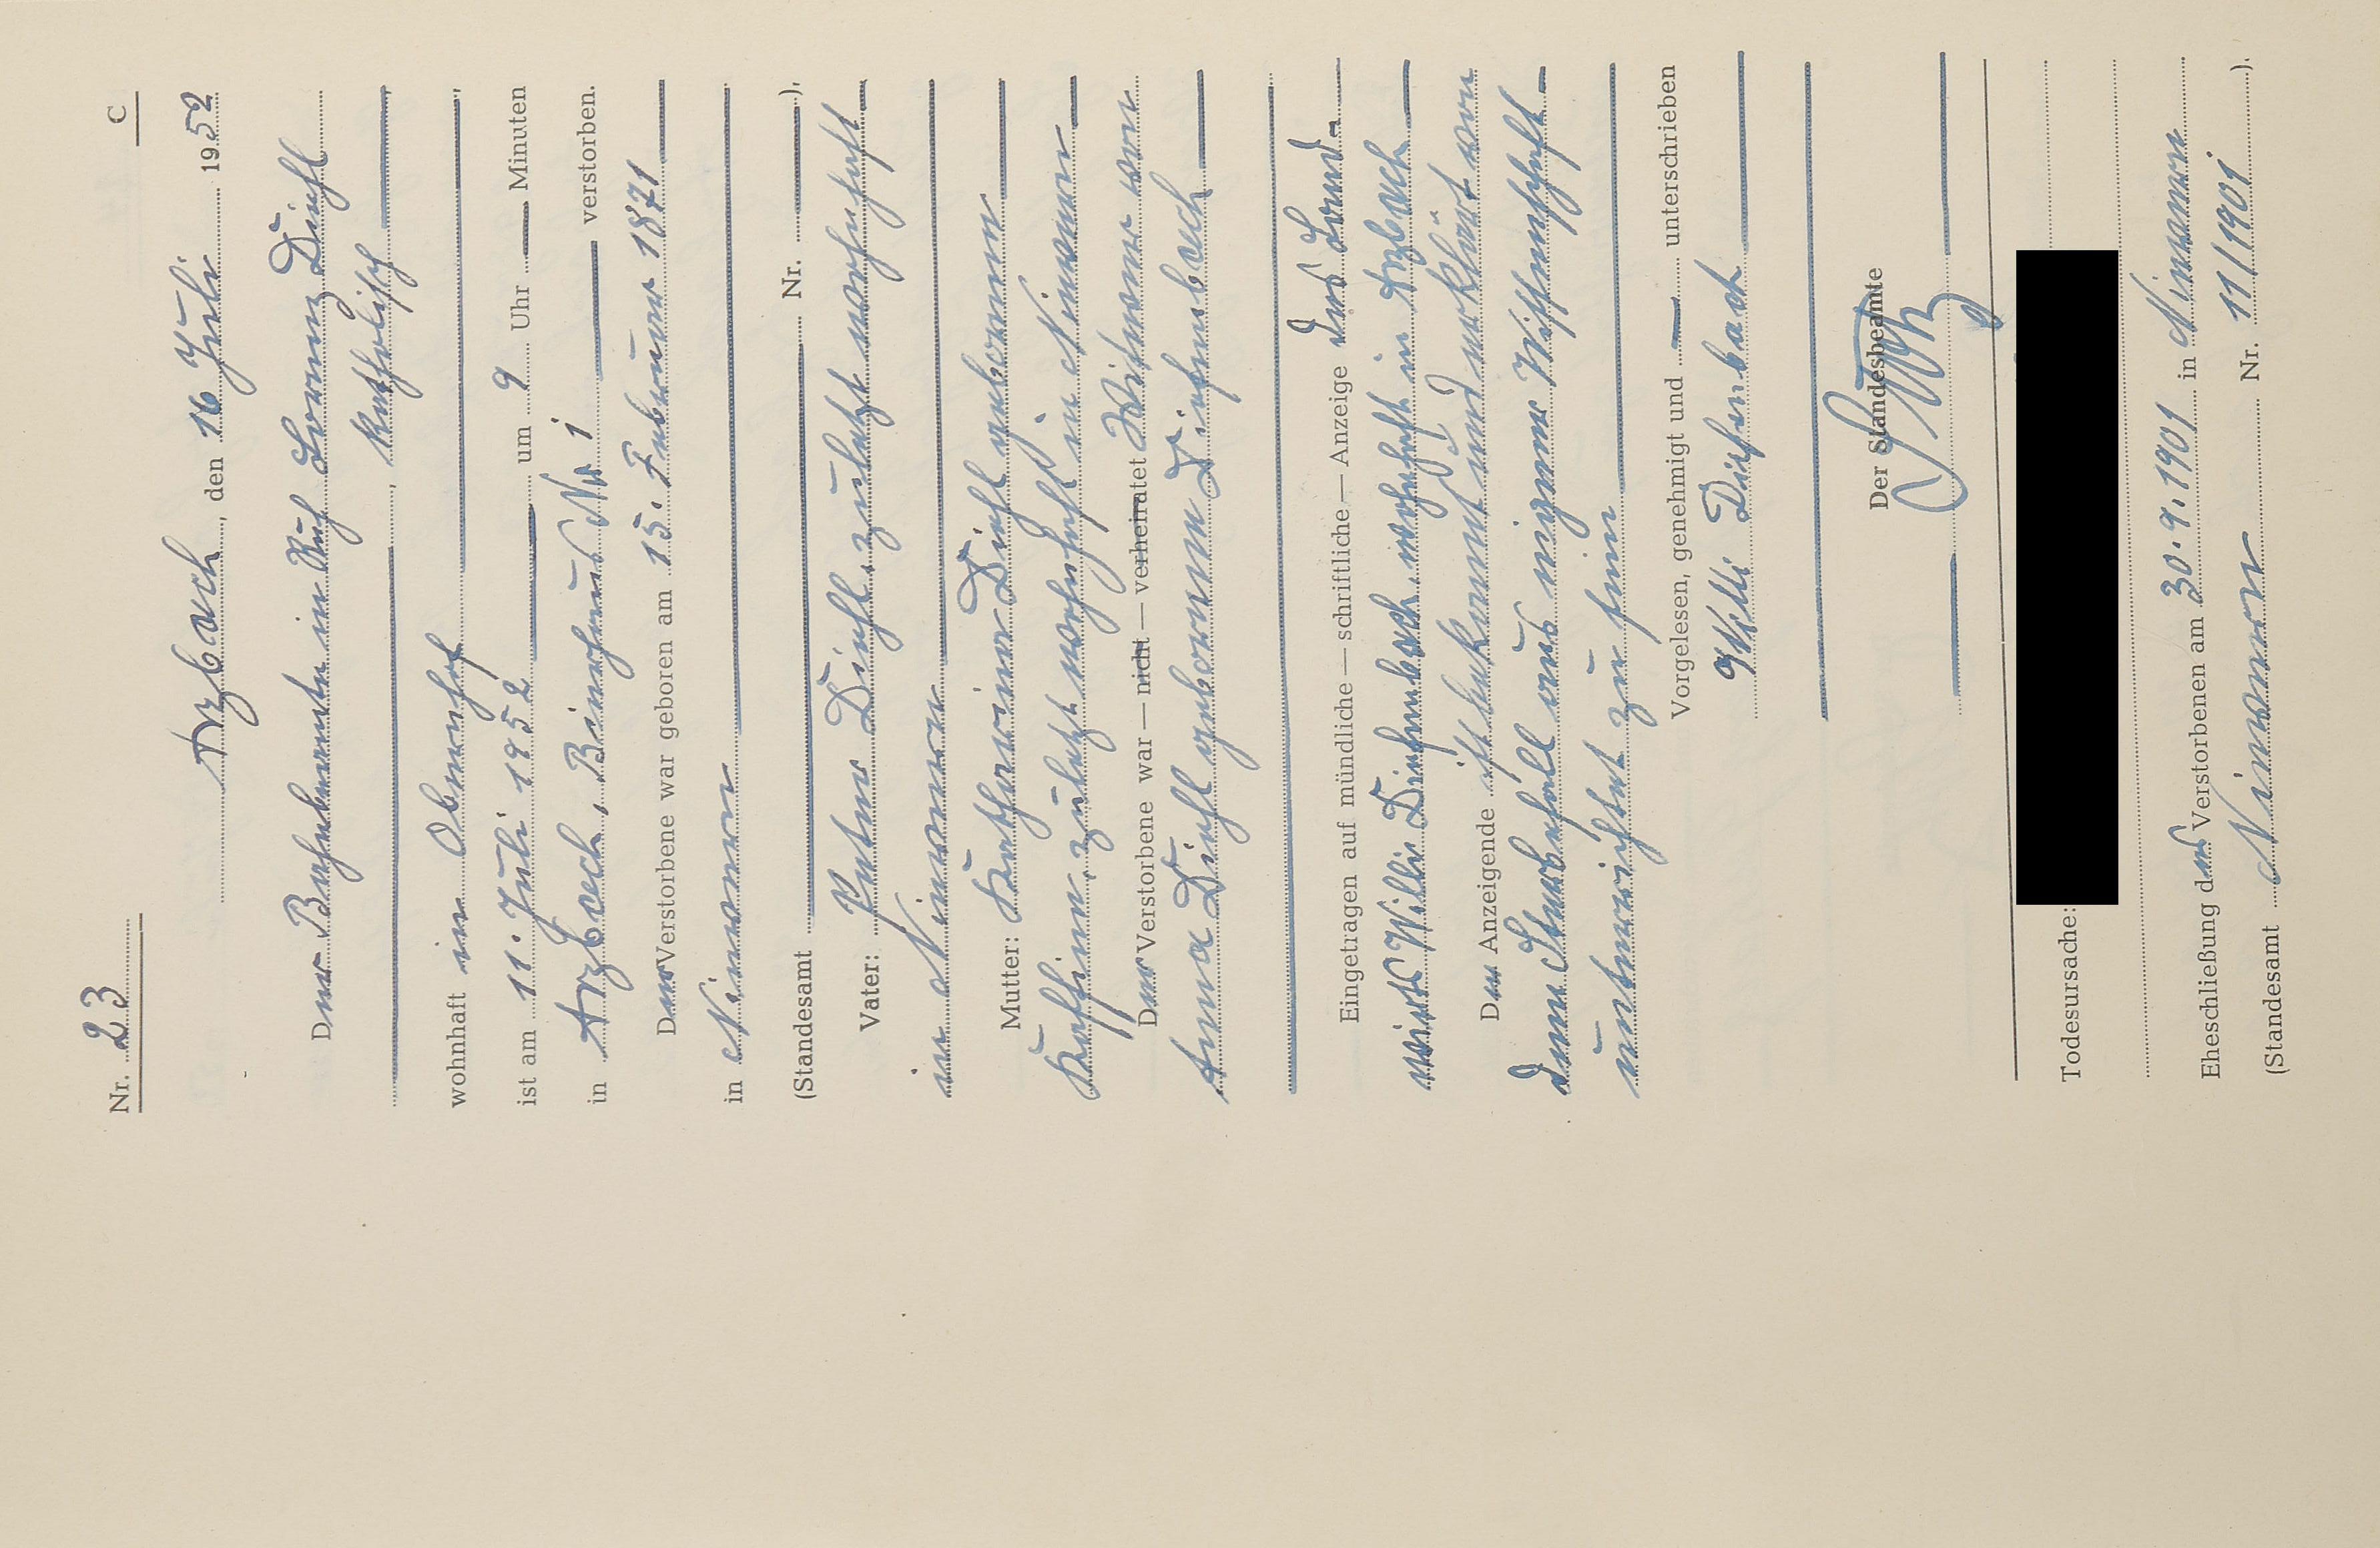 Nr. 23 C
Arzbach, den 16 Juli 1952
Der Bahnbeamte in Ruh Lorenz Diehl
, katholisch,
wohnhaft in Obernhof,
ist am 11. Juli 1952 um 9 Uhr — Minuten
in Arzbach, Bierhaus Nr 1 — verstorben.
Der Verstorbene war geboren am 15. Februar 1871
in Nievern
(Standesamt — Nr. — ).
Vater: Peter Diehl, zuletzt wohnhaft
in Nievern
Mutter: Katharina Diehl geborene
zuletzt wohnhaft in Nievern
Der Verstorbene war — nicht — verheiratet Witwer von
Anna Diehl geborenen Diefenbach
Eingetragen auf mündliche — schriftliche — Anzeige des Land-
wirts Willi Diefenbach, wohnhaft in Arzbach
Der Anzeigende ist bekannt und erklärt von
dem Sterbefall aus eigener Wissenschaft
unterrichtet zu sein
Vorgelesen, genehmigt und — unterschrieben
Willi Diefenbach
Der Standesbeamte
Todesursache:
Eheschließung des Verstorbenen am 30.9.1901 in Nievern
(Standesamt Nievern Nr. 11/1901 ).